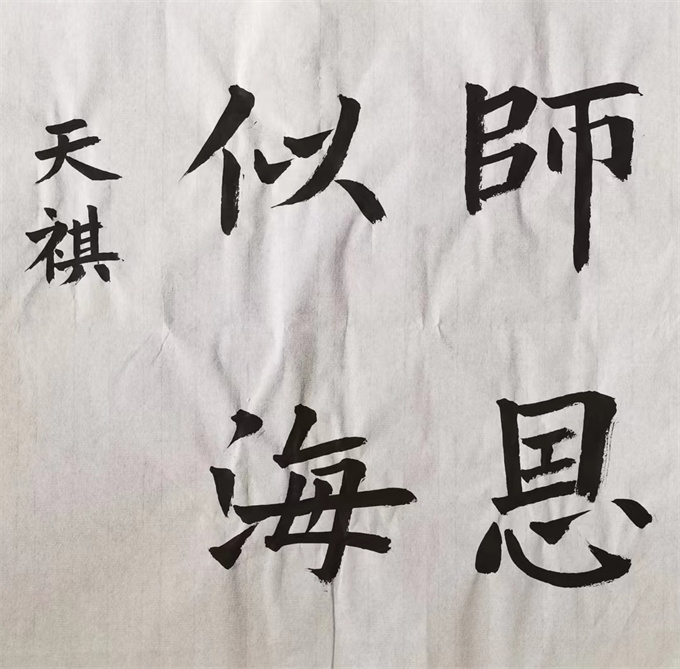 師恩
似海
天祺